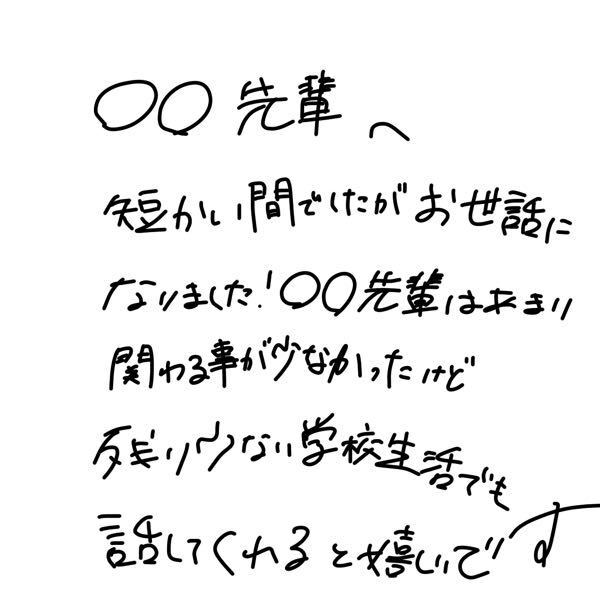 〇〇先輩へ
短かい間でしたがお世話に
なりました!〇〇先輩はあまり
関わる事が少なかったけど
残り少ない学校生活でも
話してくれると嬉しいです